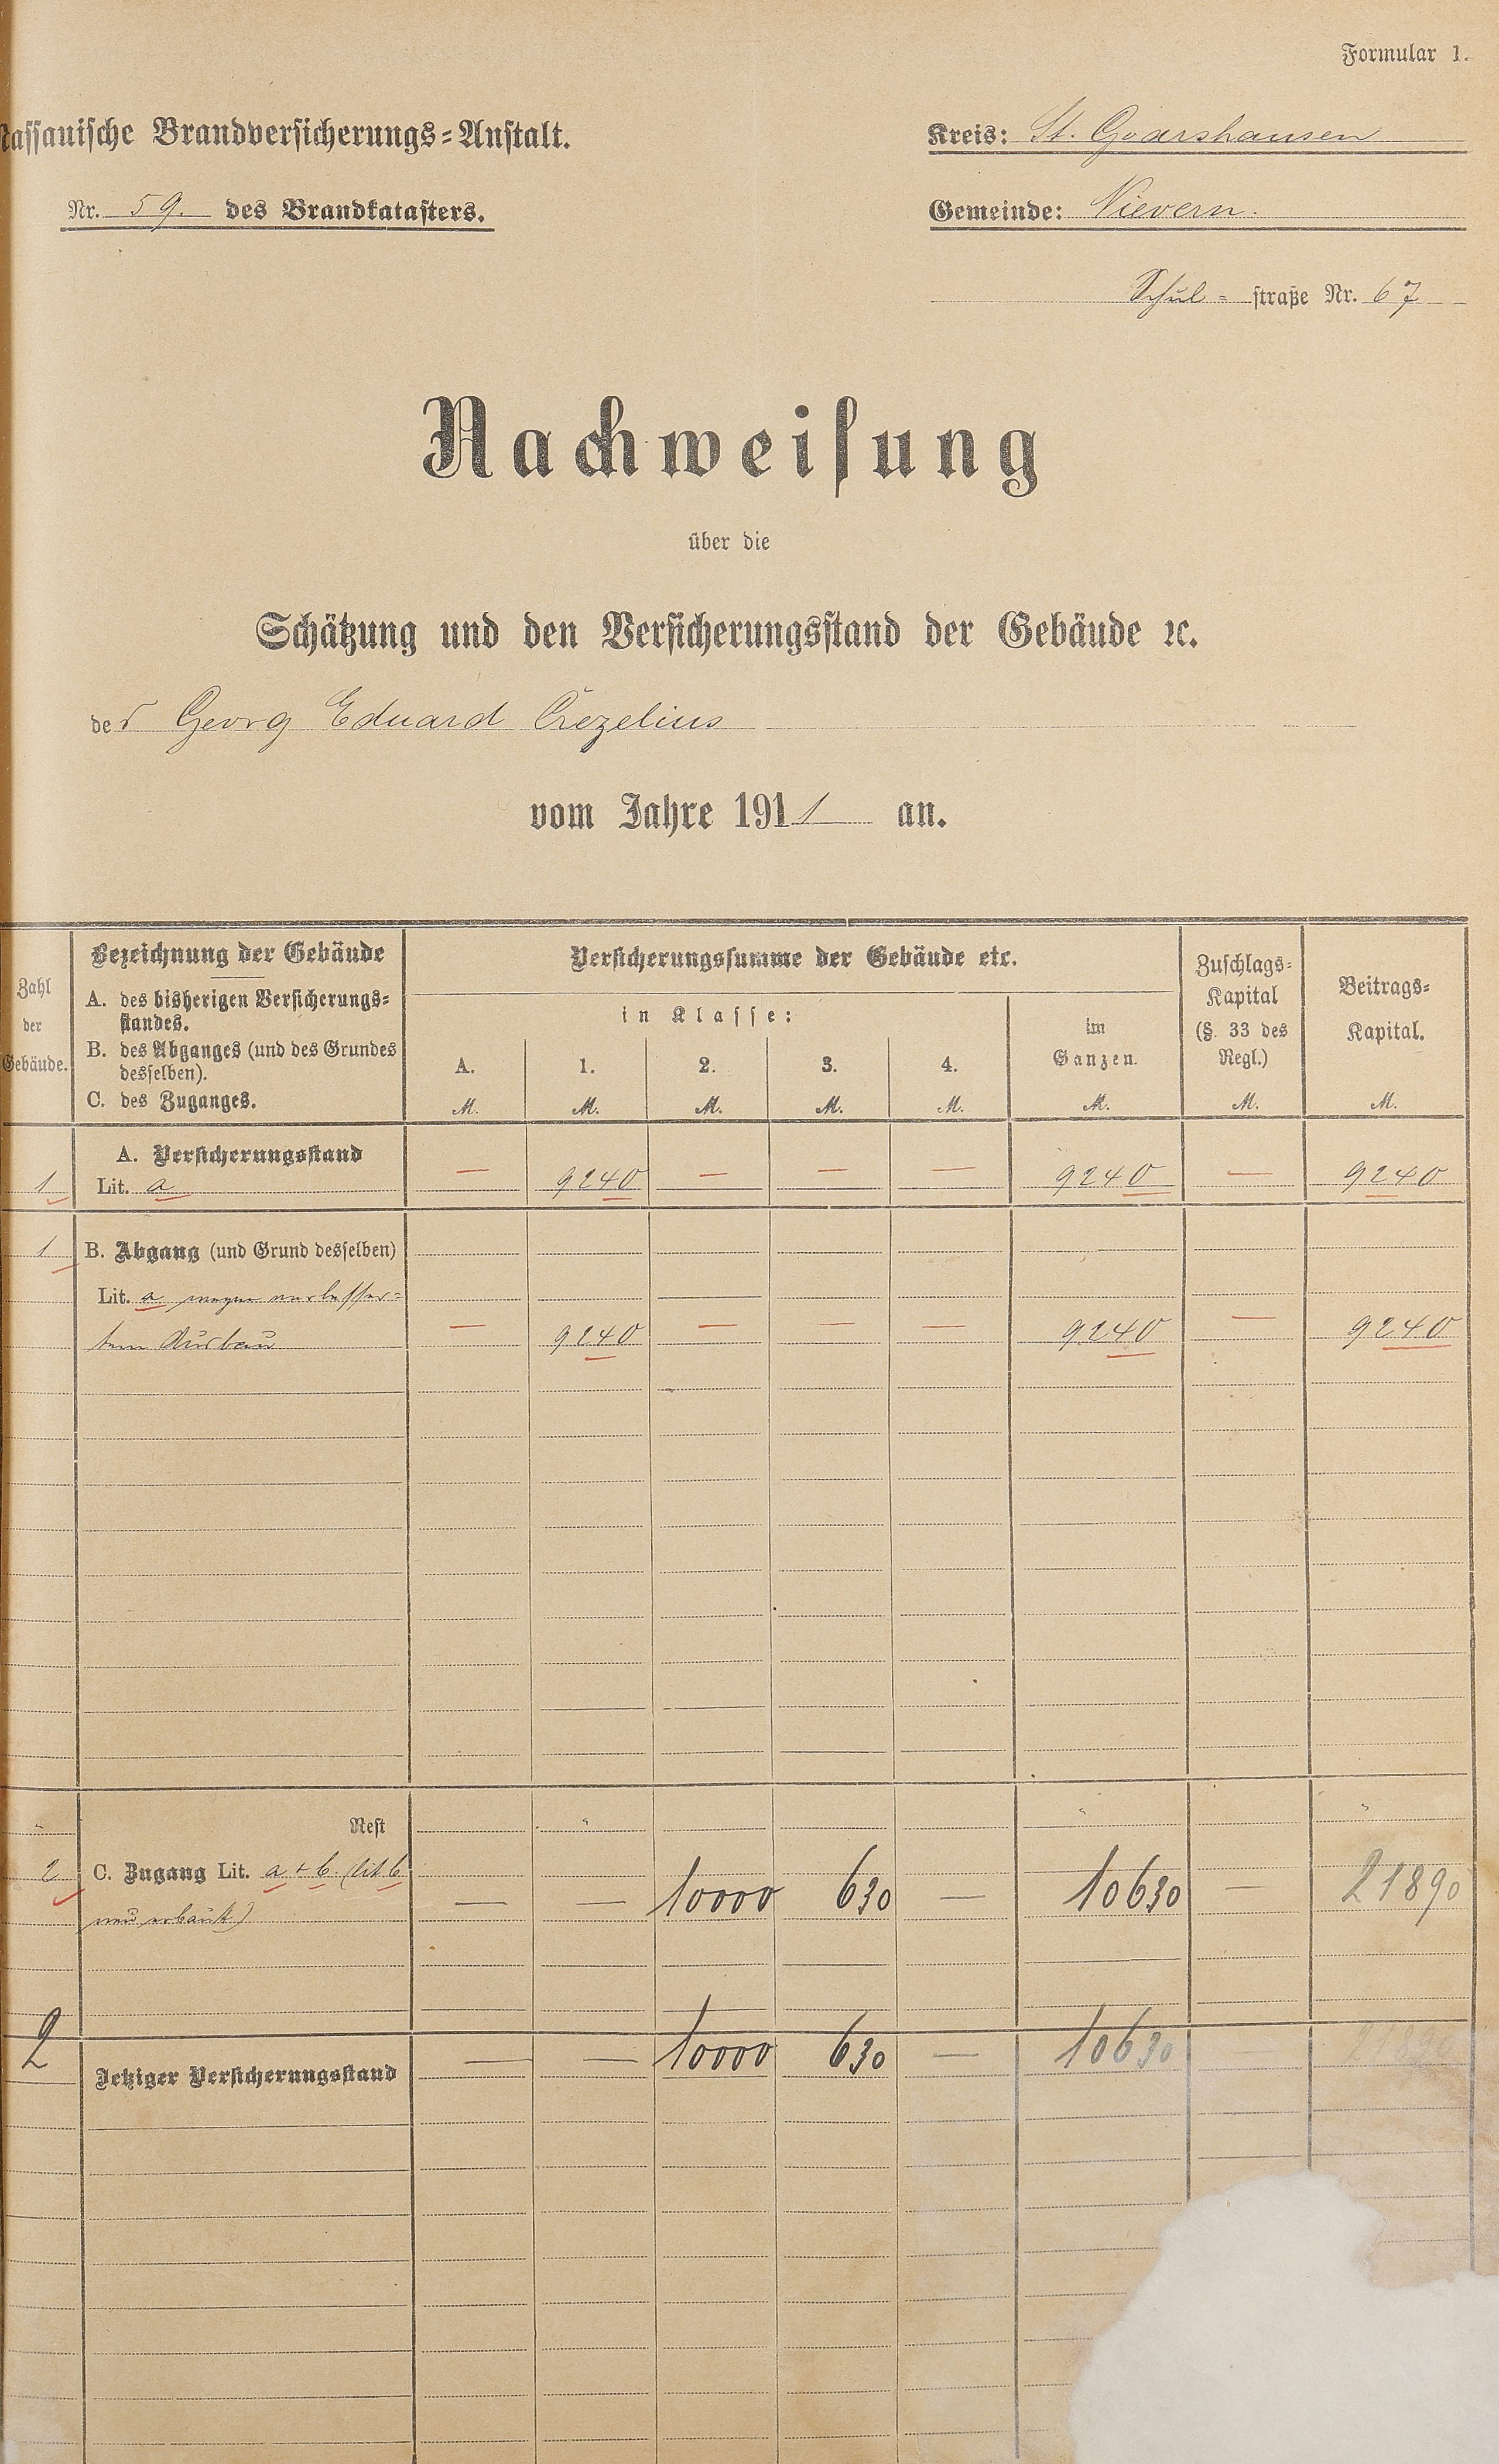 Formular 1.
Nassauische Brandversicherungs-Anstalt.
Kreis: St. Goarshausen
Nr. 59. des Brandkatasters.
Gemeinde: Nievern.
Schul-straße Nr. 67
Nachweisung
über die
Schätzung und den Versicherungsstand der Gebäude ꝛc.
des Georg Eduard Crezelius
vom Jahre 1911 an.
Zahl der Gebäude.
Bezeichnung der Gebäude
A. des bisherigen Versicherungs-
standes.
B. des Abganges (und des Grundes
desselben).
C. des Zuganges.
Versicherungssumme der Gebäude etc.
in Klasse:
A. 1. 2. 3. 4.
im
Ganzen.
Zuschlags-
Kapital
(§. 33 des
Regl.)
Beitrags-
Kapital.
M. M. M. M. M. M. M. M.
A. Versicherungsstand
1 Lit. a — 9240 — — — 9240 — 9240
1 B. Abgang (und Grund desselben)
Lit. a wegen verbesser-
tem Ausbau — 9240 — — — 9240 — 9240
" Rest " " "
2 C. Zugang Lit. a + b. (lit b
neu erbaut) — — 10000 630 — 10630 — 21890
2 Jetziger Versicherungsstand — — 10000 630 — 10630 21890